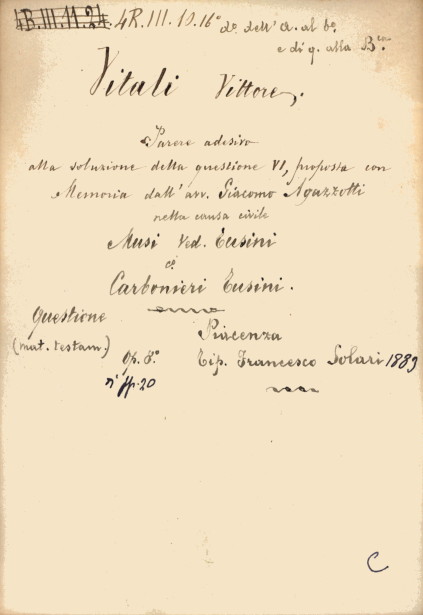 4B.III.11.24. 4R.III.19.16° d° dell'A. al b°
e di q. alla B.
Vitali Vittore.
Parere adesivo
alla soluzione della questione VI, proposta con
Memoria dall'avv. Giacomo Agazzotti
nella causa civile
Musi Ved. Eusini
c°
Carbonieri Eusini.
Questione
(mat. testam.)
Piacenza
Op. 8°. Tip. Francesco Solari 1889
n° pp. 20
C